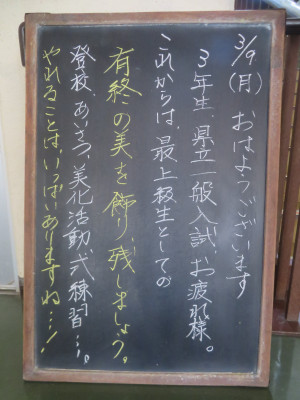 3/9(月) おはようございます
3年生、県立一般入試、お疲れ様。
これからは、最上級生としての
有終の美を飾り、残しましょう。
登校、あいさつ、美化活動、式練習…。
やれることは、いっぱいありますね…！